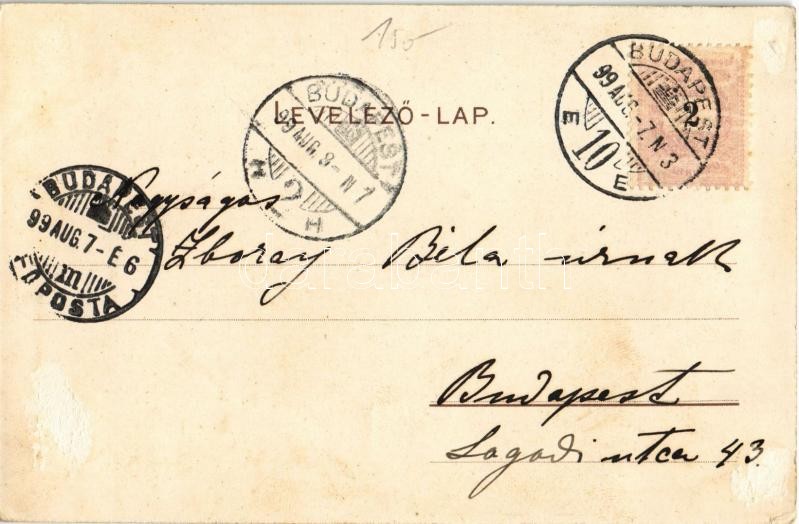 150
LEVELEZŐ-LAP.
BUDAPEST 2
99 AUG.-7.N 3
E 10 E
BUDAPEST
99 AUG. 8-N 7
H 2 H
BUDAPEST
99 AUG. 7-É 6
m
FŐPOSTA
Nagyságos
Zboray Béla úrnak
Budapest
utca 43.
darabanth